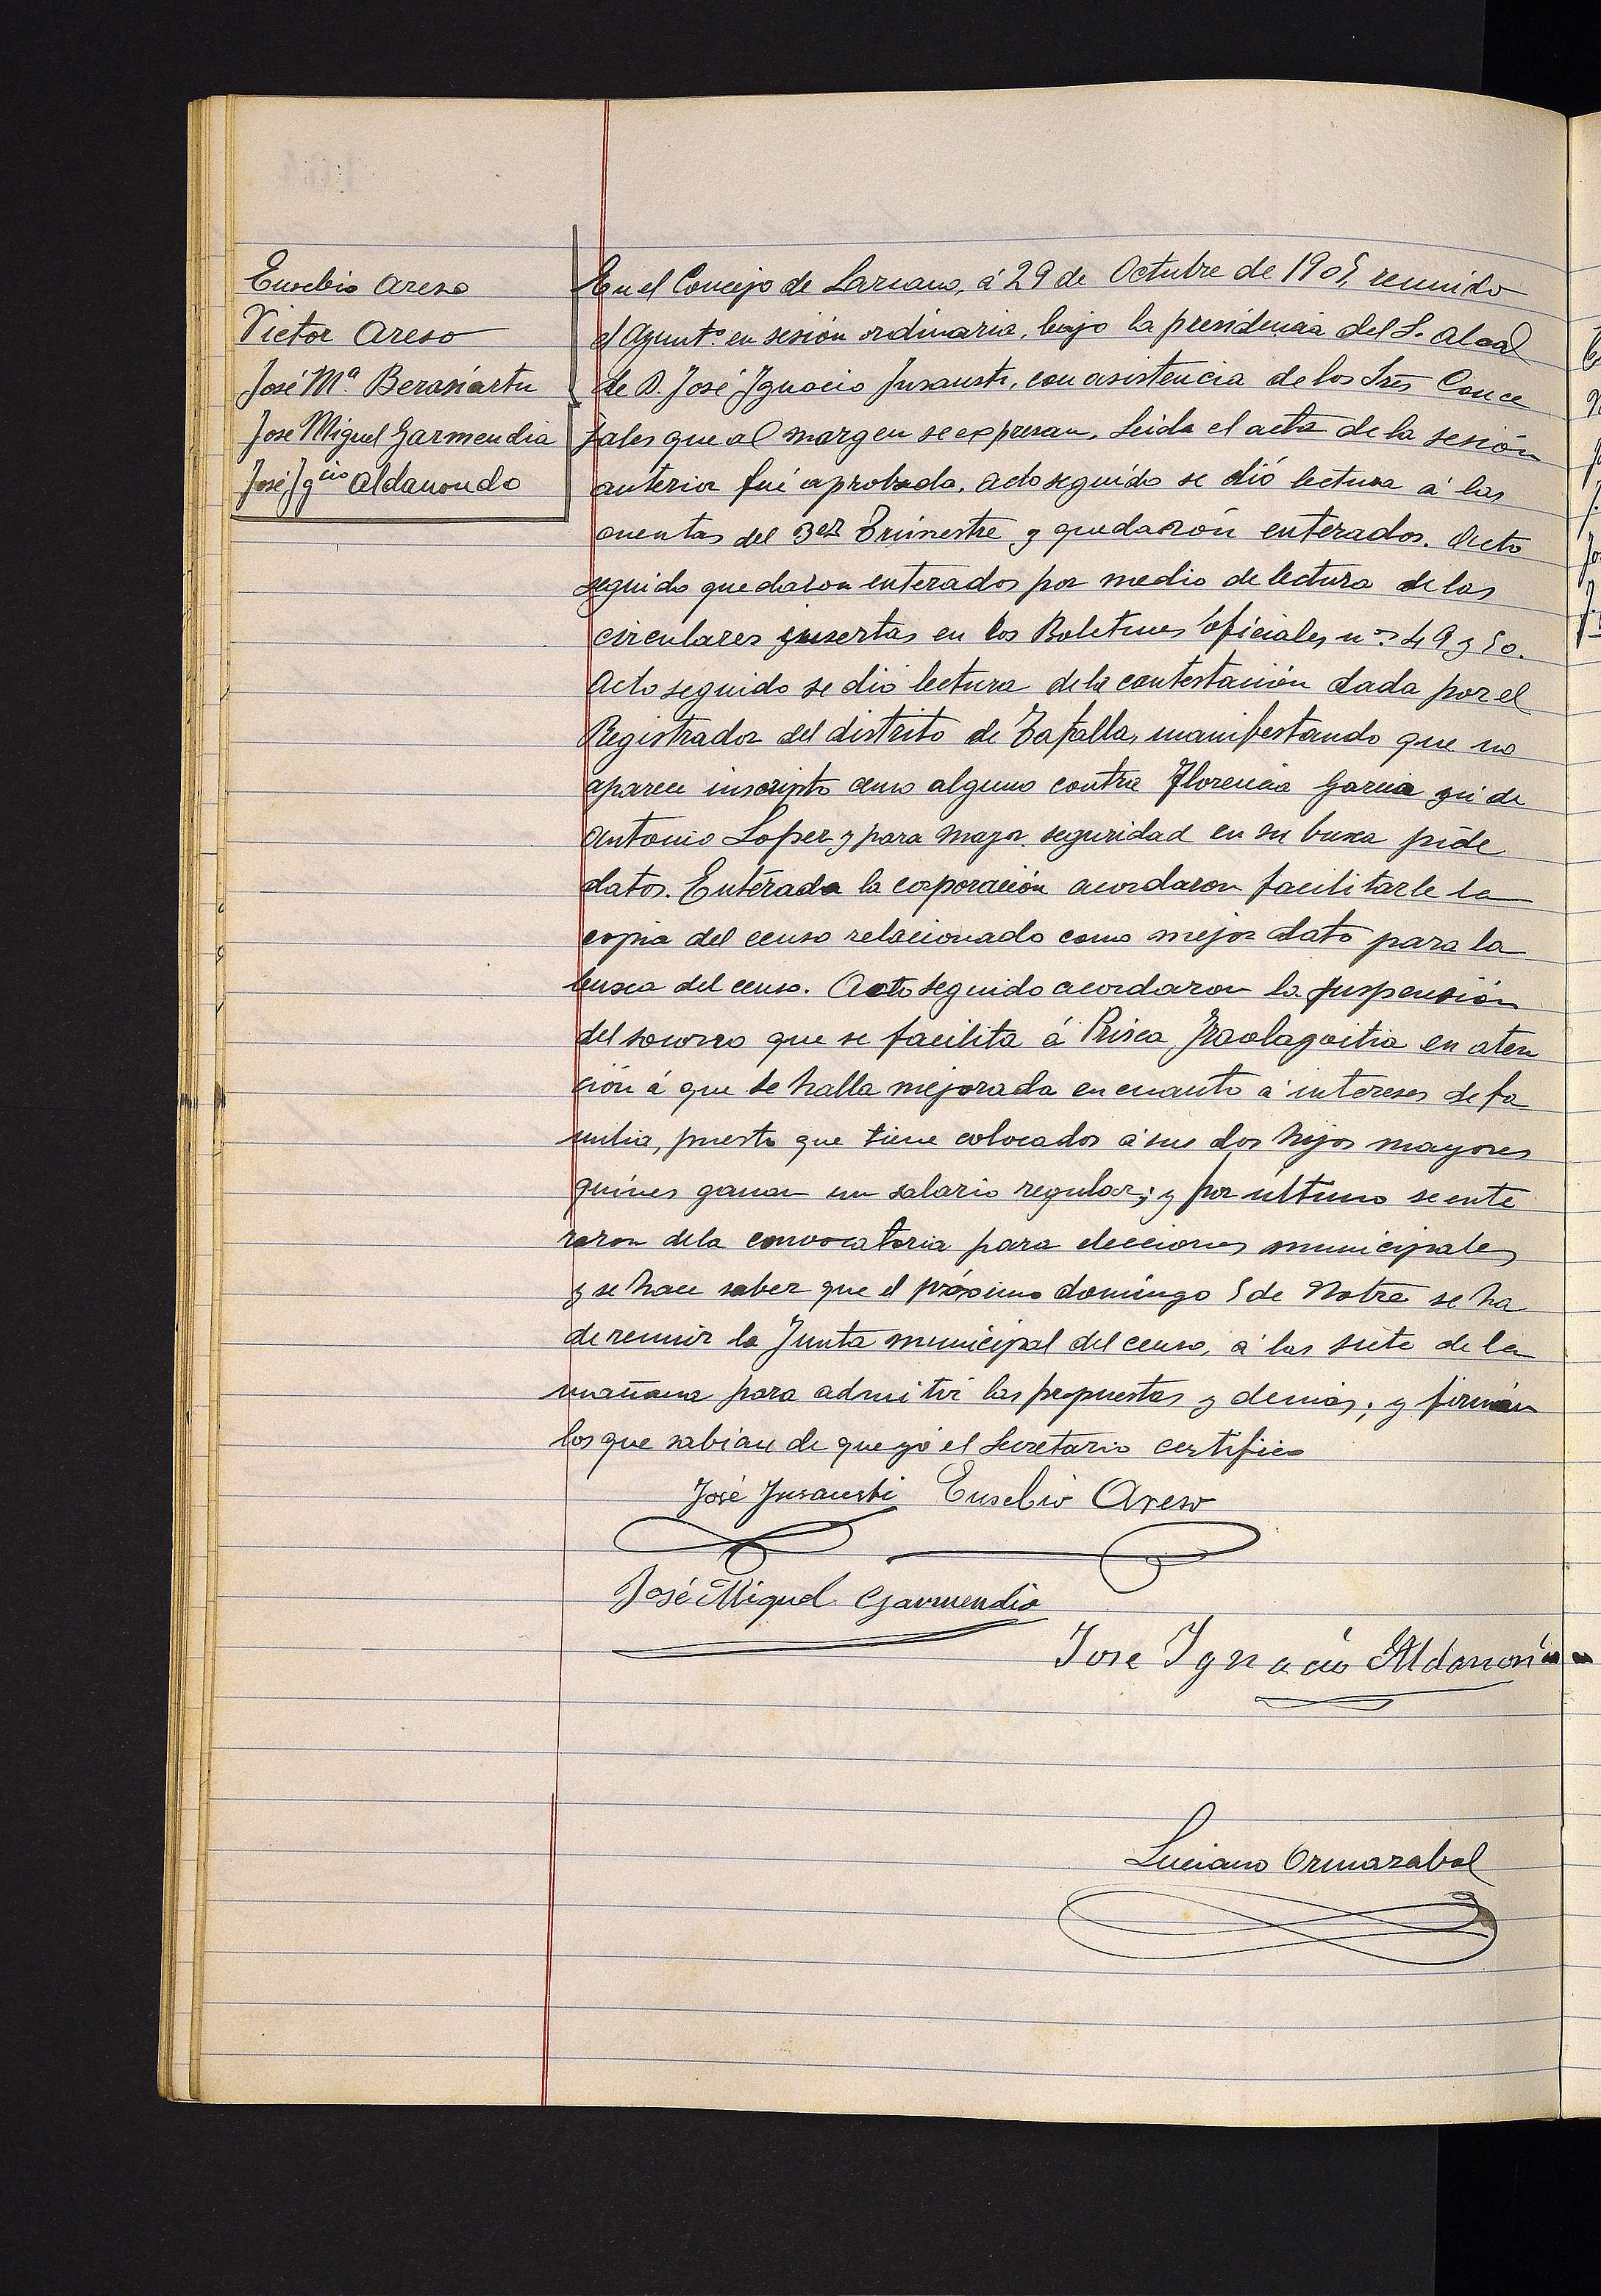 Eusebio Areso
Victor Areso
José Mª Berasiartu
José Miguel Garmendia
José Ygcio Aldanondo
En el Concejo de Lazcano, á 29 de Octubre de 1905, reunido
el Ayuntº en sesión ordinaria, bajo la presidencia del S. Alcal
de D. José Ygnacio Ynsausti, con asistencia de los Sres Conce
jales que al margen se expresan. Leida el acta de la sesión
anterior fué aprobada. Acto seguido se dió lectura á las
cuentas del 3er Trimestre y quedarón enterados. Acto
seguido quedaron enterados por medio de lectura de las
circulares insertas en los Boletines oficiales nos 49 y 50.
Acto seguido se dió lectura de la contestación dada por el
Registrador del distrito de Tafalla, manifestando que no
aparece inscripto censo alguno contra Florencia Garcia ni de
Antonio Lopez y para mayor seguridad en su busca pide
datos. Enterada la corporación acordaron facilitarle la
copia del censo relacionado como mejor dato para la
busca del censo. Acto seguido acordaron la suspensión
del socorro que se facilita á Prisca Yraolagoitia en aten
ción á que se halla mejorada en cuanto á intereses de fa
milia, puesto que tiene colocados á sus dos hijos mayores
quines ganan un salario regular; y por último se ente
raron dela convocatoria para elecciones municipales
y se hace saber que el próximo domingo 5 de Nobre se ha
de reunir la Junta municipal del censo, á las siete de la
mañana para admitir las propuestas y demas; y firman
los que sabian de que yó el Secretario certifico
José Ynsausti Eusebio Areso
José Miguel Garmendia
Jose Ygnacio Aldanondo
Luciano Ormazabal